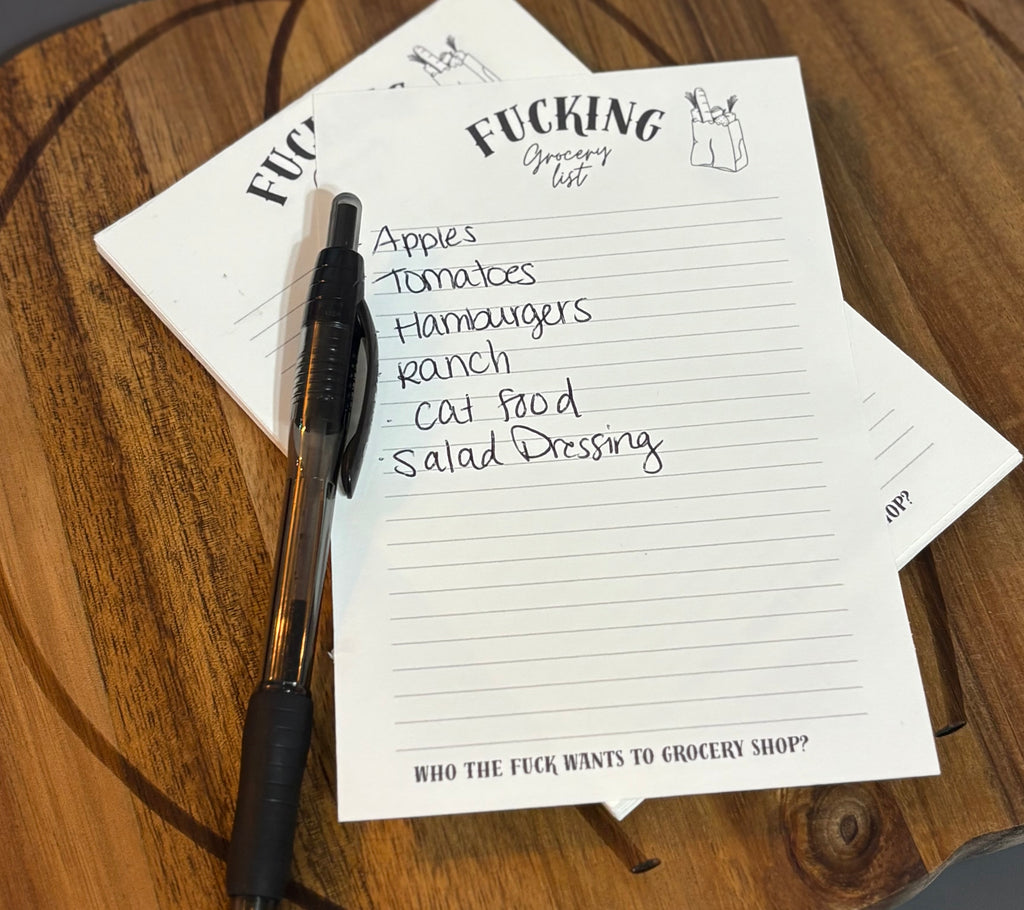 FUC
FUCKING
Grocery
list
Apples
Tomatoes
Hamburgers
Ranch
Cat food
Salad Dressing
WHO THE FUCK WANTS TO GROCERY SHOP?
OP?